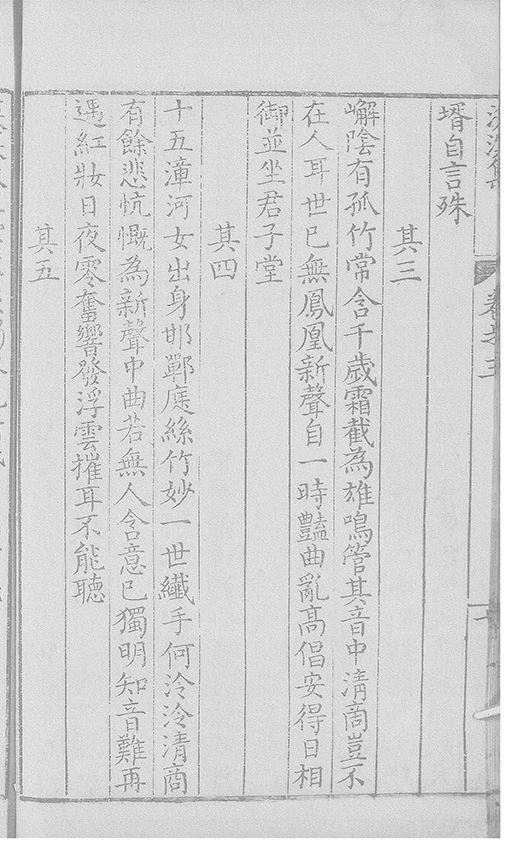 壻自言殊
其三
嶰陰有孤竹常含千歳霜截為雄鳴管其音中清商豈不
在人耳世已無鳳凰新聲自一時豔曲亂高倡安得日相
御並坐君子堂
其四
十五漳河女出身邯鄲庭絲竹妙一世纖手何泠泠清商
有餘悲忼慨為新聲中曲若無人含意已獨明知音難再
遇紅妝日夜零奮響發浮雲摧耳不能聽
其五